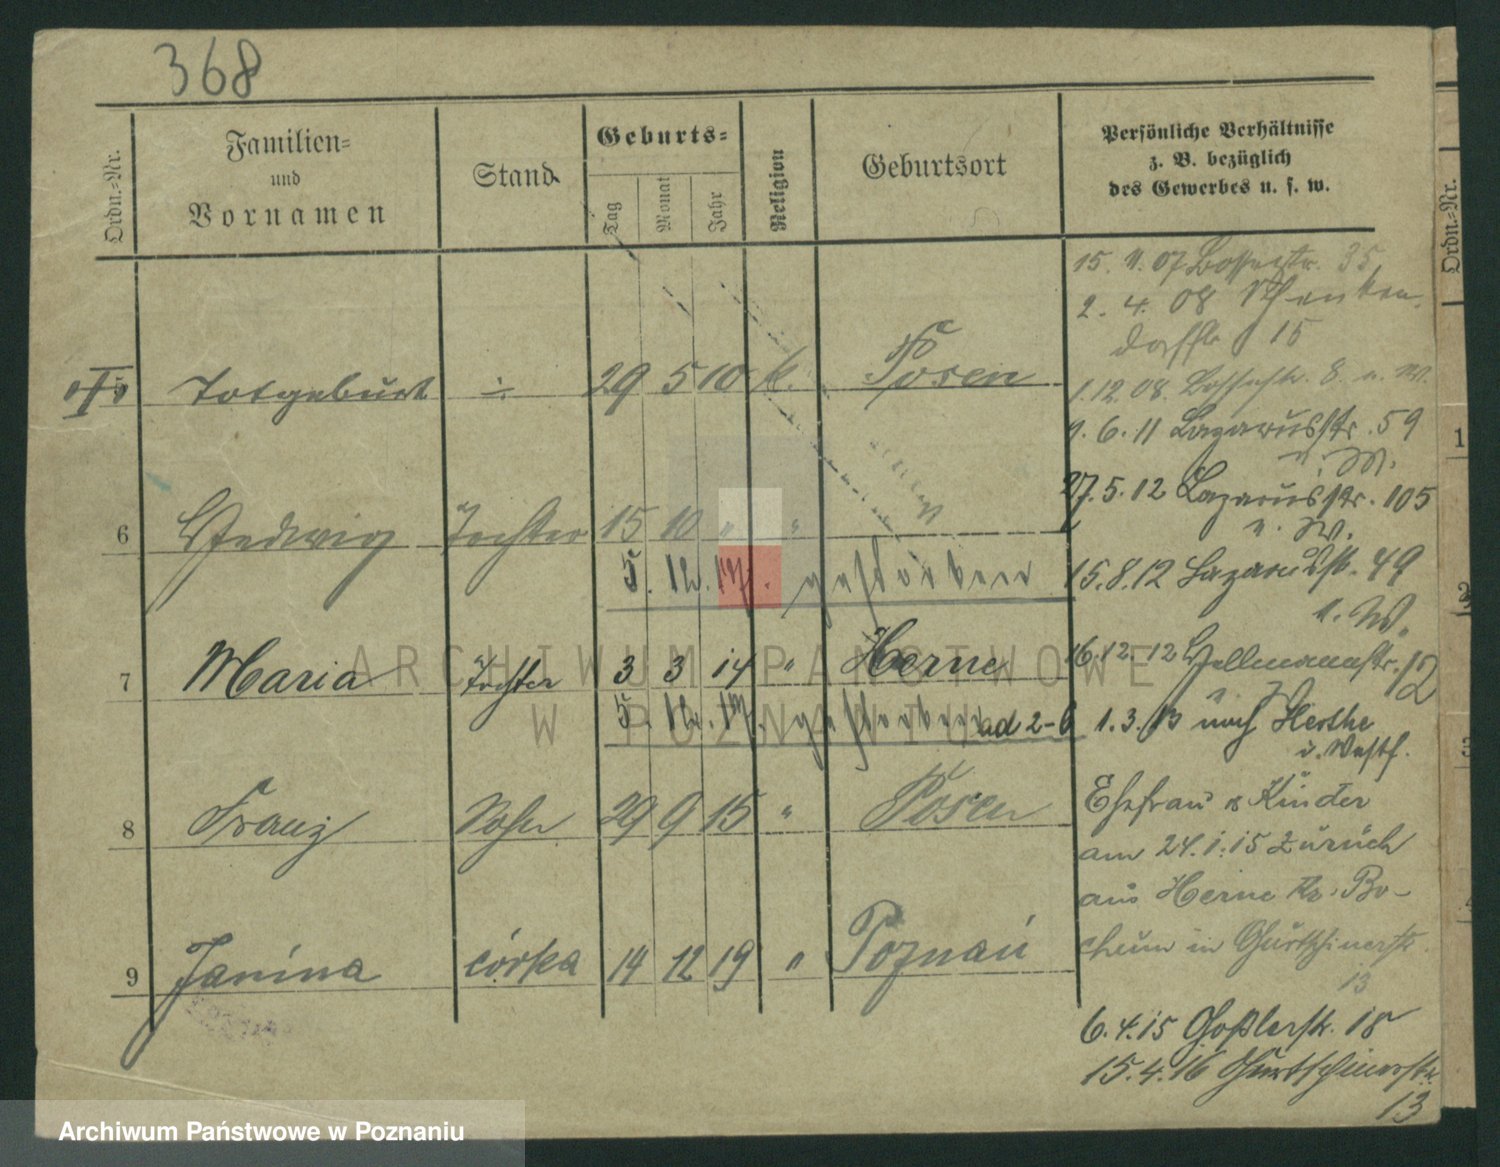 368
Ordn.-Nr.
Familien-
und
Vornamen
Stand
Geburts-
Tag
Monat
Jahr
Religion
Geburtsort
Persönliche Verhältnisse
z. B. bezüglich
des Gewerbes u. s. w.
5 Totgeburt ÷ 29 5 10 k. Posen
6 Hedwig Tochter 15 10 " " "
5. 12. 17. gestorben
7 Maria Tochter 3 3 14 " Herne
5. 12. 17. gestorben
8 Franz Sohn 29 9 15 " Posen
9 Janina córka 14 12 19 " Poznań
15. 11. 07 35
2. 4. 08 Schenken
dorffstr 15
1.12.08. 8. u. W.
1. 6. 11 Lazarusstr. 59
u. W.
27. 5. 12 Lazarusstr. 105
u. W.
15. 8. 12 Lazarusstr. 49
u. W.
16. 12. 12 12
ad 2-6 1. 3. 13 nach Herthe
i. Westf.
Ehefrau & Kinder
am 24. 1. 15 zurück
aus Herne Kr. Bo-
chum in Gurtschinerstr.
13
6. 4. 15 Goßlerstr. 18
15. 4. 16 Gurtschinerstr.
13
Ordn.-Nr.
1
2
3
ARCHIWUM PAŃSTWOWE
W POZNANIU
Archiwum Państwowe w Poznaniu